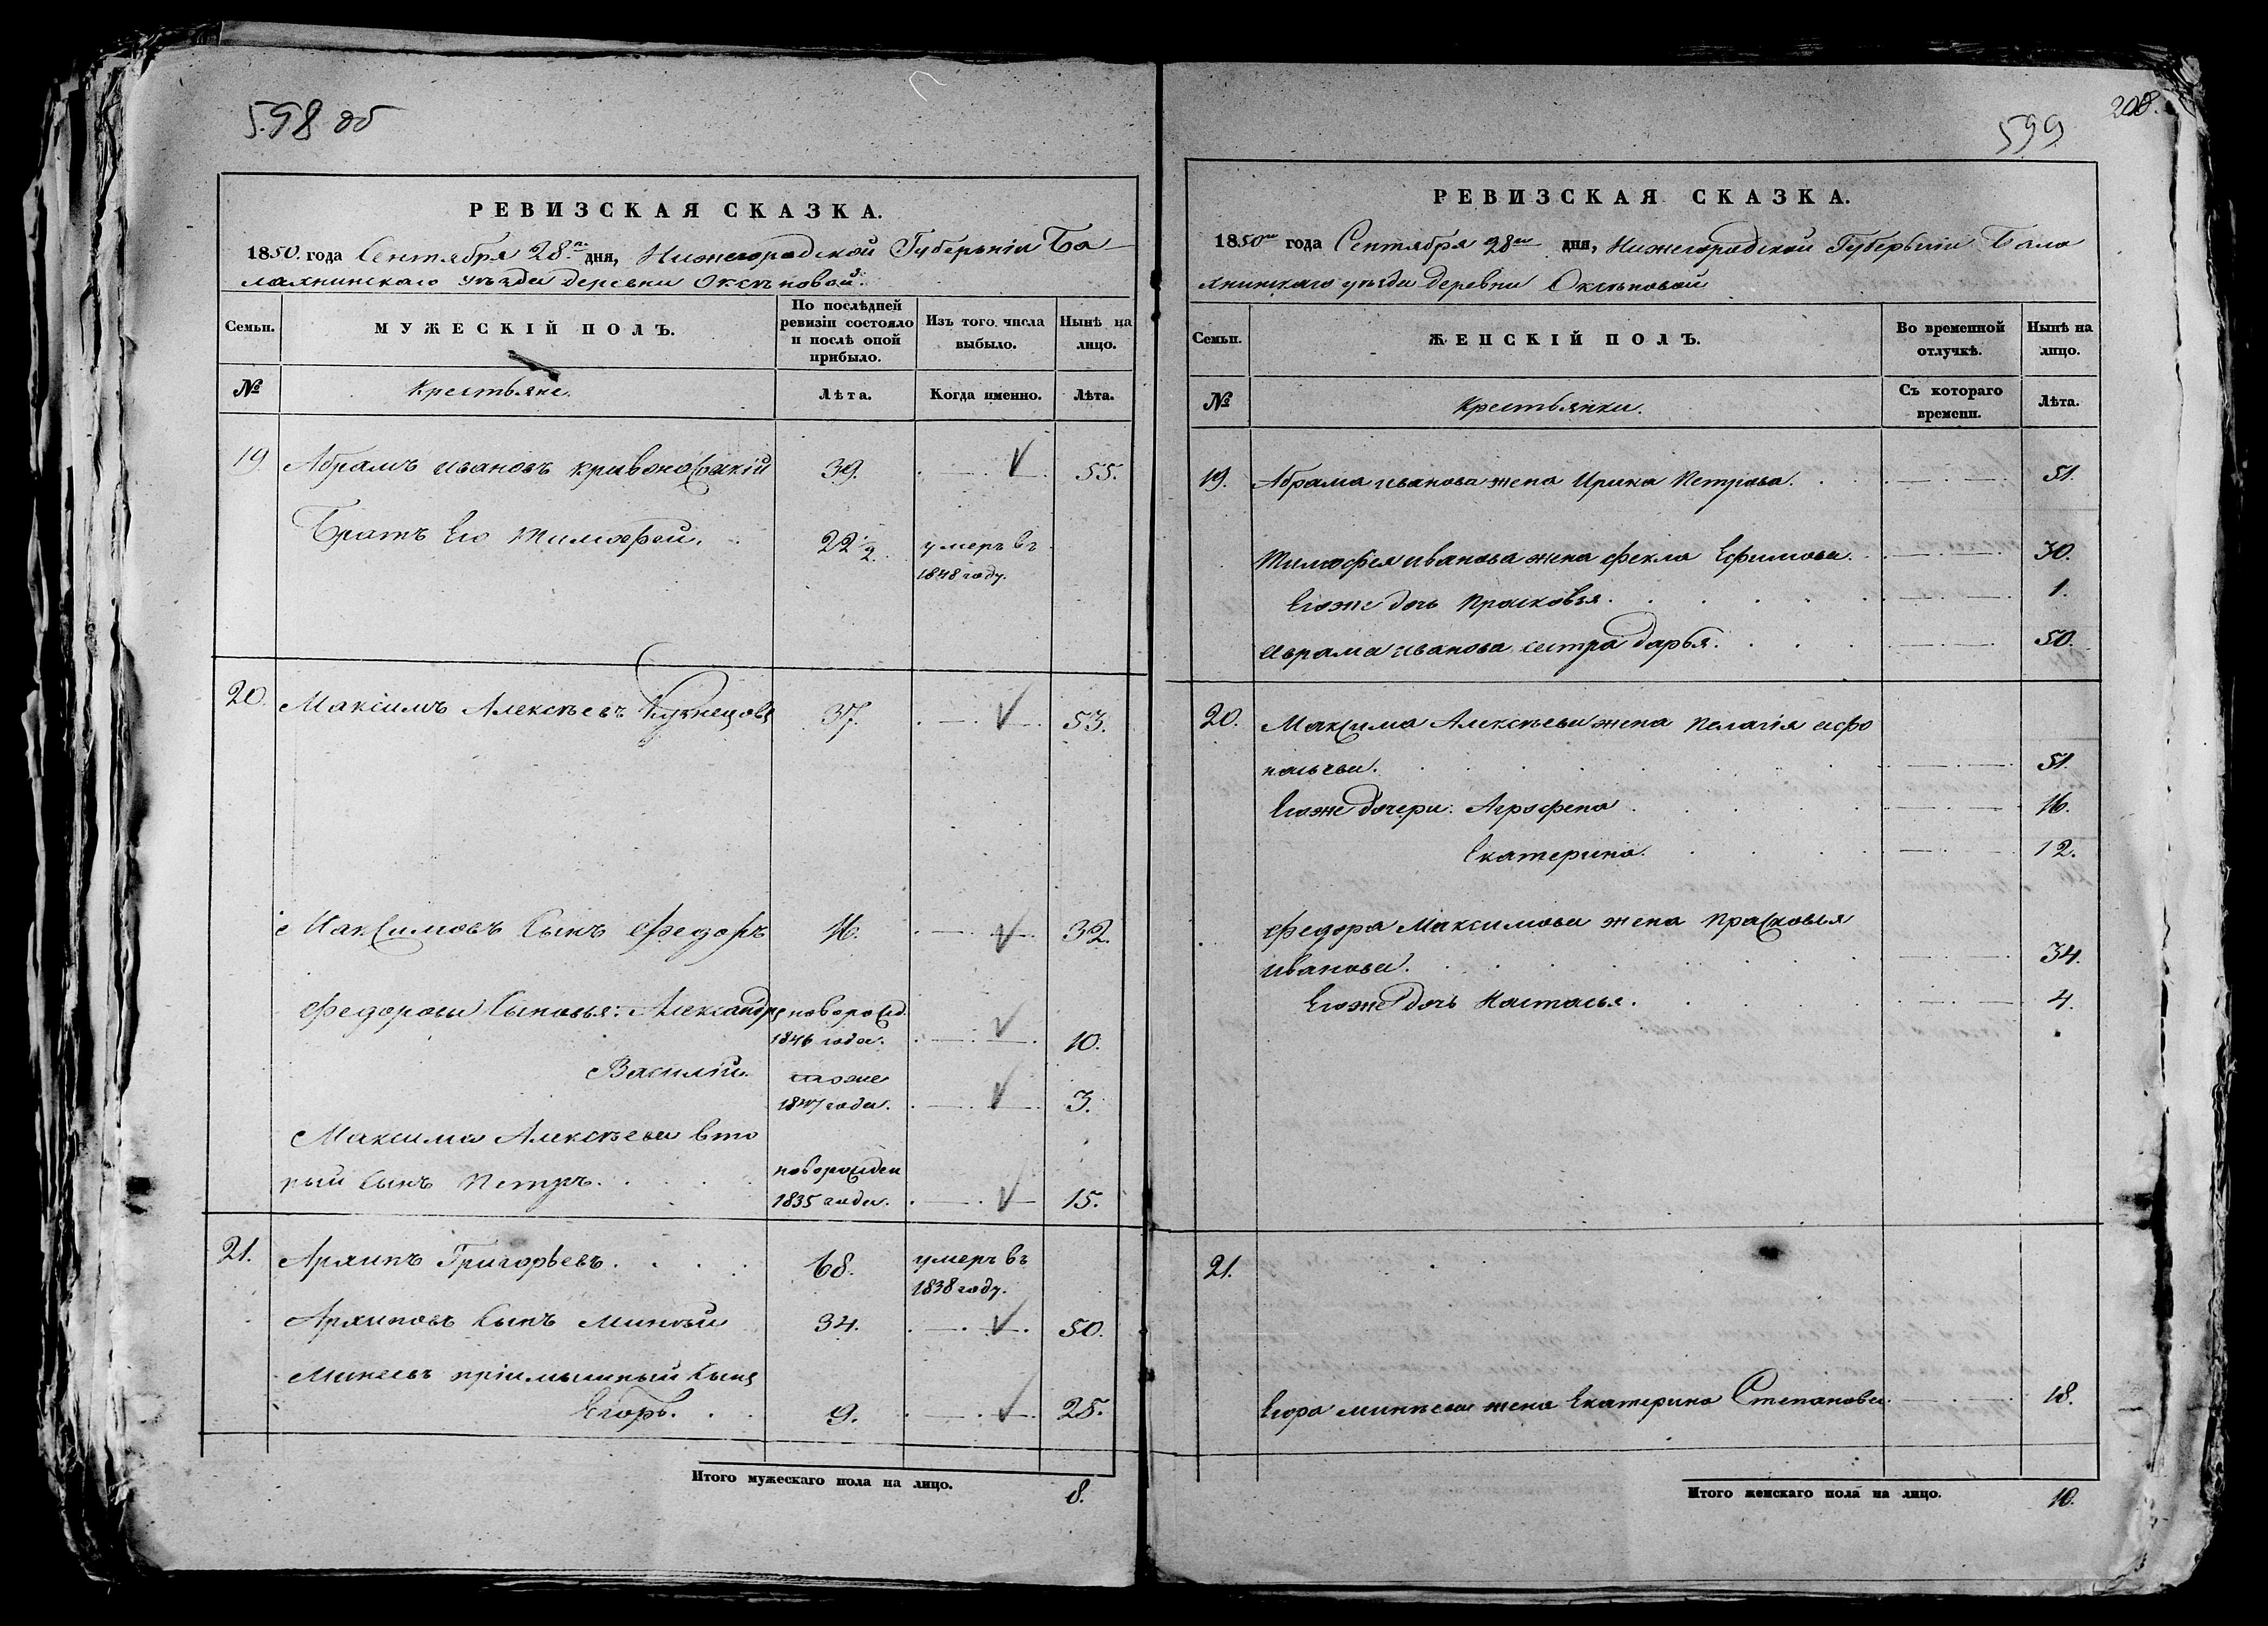 598 об
РЕВИЗСКАЯ СКАЗКА.
1850. года Сентября 28.го дня, Нижегородской Губерьніи Ба
лахнинскаго уѣзда деревни Оксѣновой.
Семьи.
МУЖЕСКІЙ ПОЛЪ.
По послѣдней ревизіи состояло и послѣ оной прибыло.
Изъ того числа выбыло.
Нынѣ на лицо.
№ Крестьяне. Лѣта. Когда именно. Лѣта.
19. Абрамъ Ивановъ 39. 55.
Братъ Его Тимофей. 22 1/2. умеръ въ
1848 году.
20. Максимъ Алексѣевъ Кузнецовъ 37. 53.
Максимовъ Сынъ Федоръ 16. 32.
Федоровы Сыновья: Александръ
1846 года. 10.
Василий. тоже
1847 года. 3.
Максима Алексѣева вто
рый Сынъ Петръ. новорожден
1835 года. 15.
21. Архипъ Григорьевъ. 68. умеръ въ
1838 году.
Архиповъ Сынъ Миней 34. 50.
Минеевъ пріимышный Сынъ
Егоръ. 9. 25.
Итого мужескаго пола на лицо. 8.
208.
599
РЕВИЗСКАЯ СКАЗКА.
1850го года Сентября 28го дня, Нижегородской Губерьніи Бала
хнинскаго уѣзда деревни Оксѣновой
Семьи.
ЖЕНСКІЙ ПОЛЪ.
Во временной отлучкѣ.
Нынѣ на лицо.
№ Крестьянки. Съ котораго времени. Лѣта.
19. Абрама Иванова жена Ирина Петрова. 51.
Тимофея Иванова жена Фекла Ефимова. 30.
Егоже дочь Прасковья. 1.
Аврама Иванова сестра Дарья. 50.
20. Максима Алексѣева жена Пелагія Афо
насьева. 51.
Егоже дочери: Аграфена 16.
Екатерина. 12.
Федора Максимова жена Прасковья
Иванова. 34.
Егоже дочь Настасья. 4.
21.
Егора Минѣева жена Екатерина Степанова. 18.
Итого женскаго пола на лицо. 10.